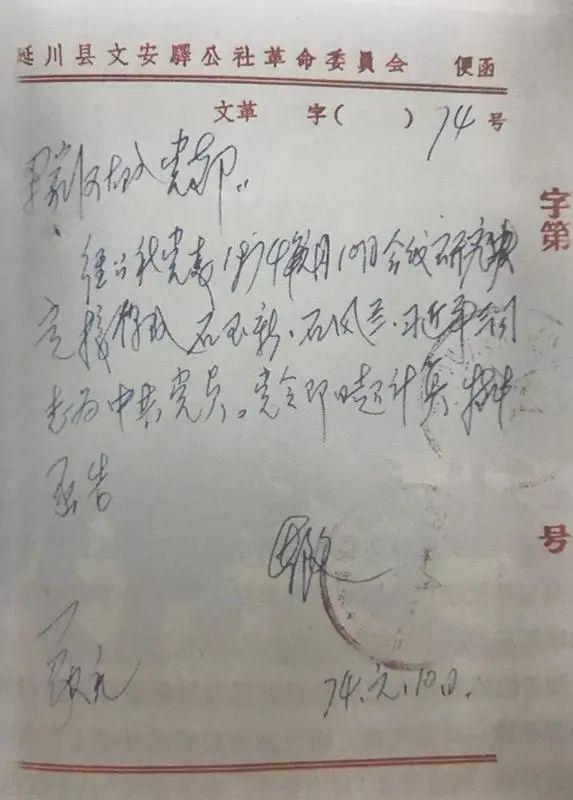 延川县文安驛公社革命委員会 便函
文革 字( ) 74 号
梁家河大队党部:
经公社党委1974年元月10日会议研究决
定接收 石玉新、石风兰、习近平同
志为中共党员。党令即日起计算,特此
函告
74.元.10日.
致礼
字第
号